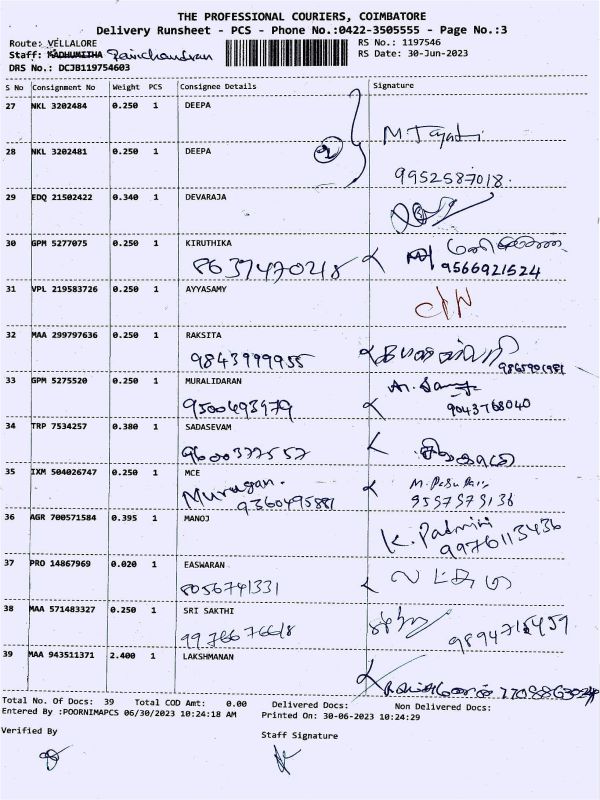 THE PROFESSIONAL COURIERS, COIMBATORE
Delivery Runsheet - PCS - Phone No.:0422-3505555 - Page No.:3
Route: VELLALORE RS No.: 1197546
Staff: MADHUMITHA RS Date: 30-Jun-2023
DRS No.: DCJB119754603
S No Consignment No Weight PCS Consignee Details Signature
27 NKL 3202484 0.250 1 DEEPA
28 NKL 3202481 0.250 1 DEEPA
9952587018.
29 EDQ 21502422 0.340 1 DEVARAJA
30 GPM 5277075 0.250 1 KIRUTHIKA
8637470218 9566921524
31 VPL 219583726 0.250 1 AYYASAMY
32 MAA 299797636 0.250 1 RAKSITA
9843999955
33 GPM 5275520 0.250 1 MURALIDARAN
9500693979 9043768040
34 TRP 7534257 0.380 1 SADASEVAM
9600377557
35 IXM 504026747 0.250 1 MCE
Murugan. 9360495881
36 AGR 700571584 0.395 1 MANOJ
K. Padmini
9976113436
37 PRO 14867969 0.020 1 EASWARAN
8056741331
38 MAA 571483327 0.250 1 SRI SAKTHI
9894715459
39 MAA 943511371 2.400 1 LAKSHMANAN
Total No. Of Docs: 39 Total COD Amt: 0.00 Delivered Docs: Non Delivered Docs:
Entered By :POORNIMAPCS 06/30/2023 10:24:18 AM Printed On: 30-06-2023 10:24:29
Verified By Staff Signature